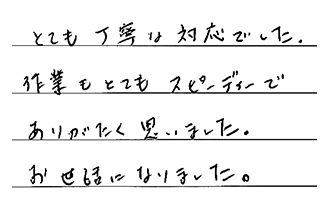 とても丁寧な対応でした.
作業もとてもスピーディーで
ありがたく思いました。
お世話になりました。